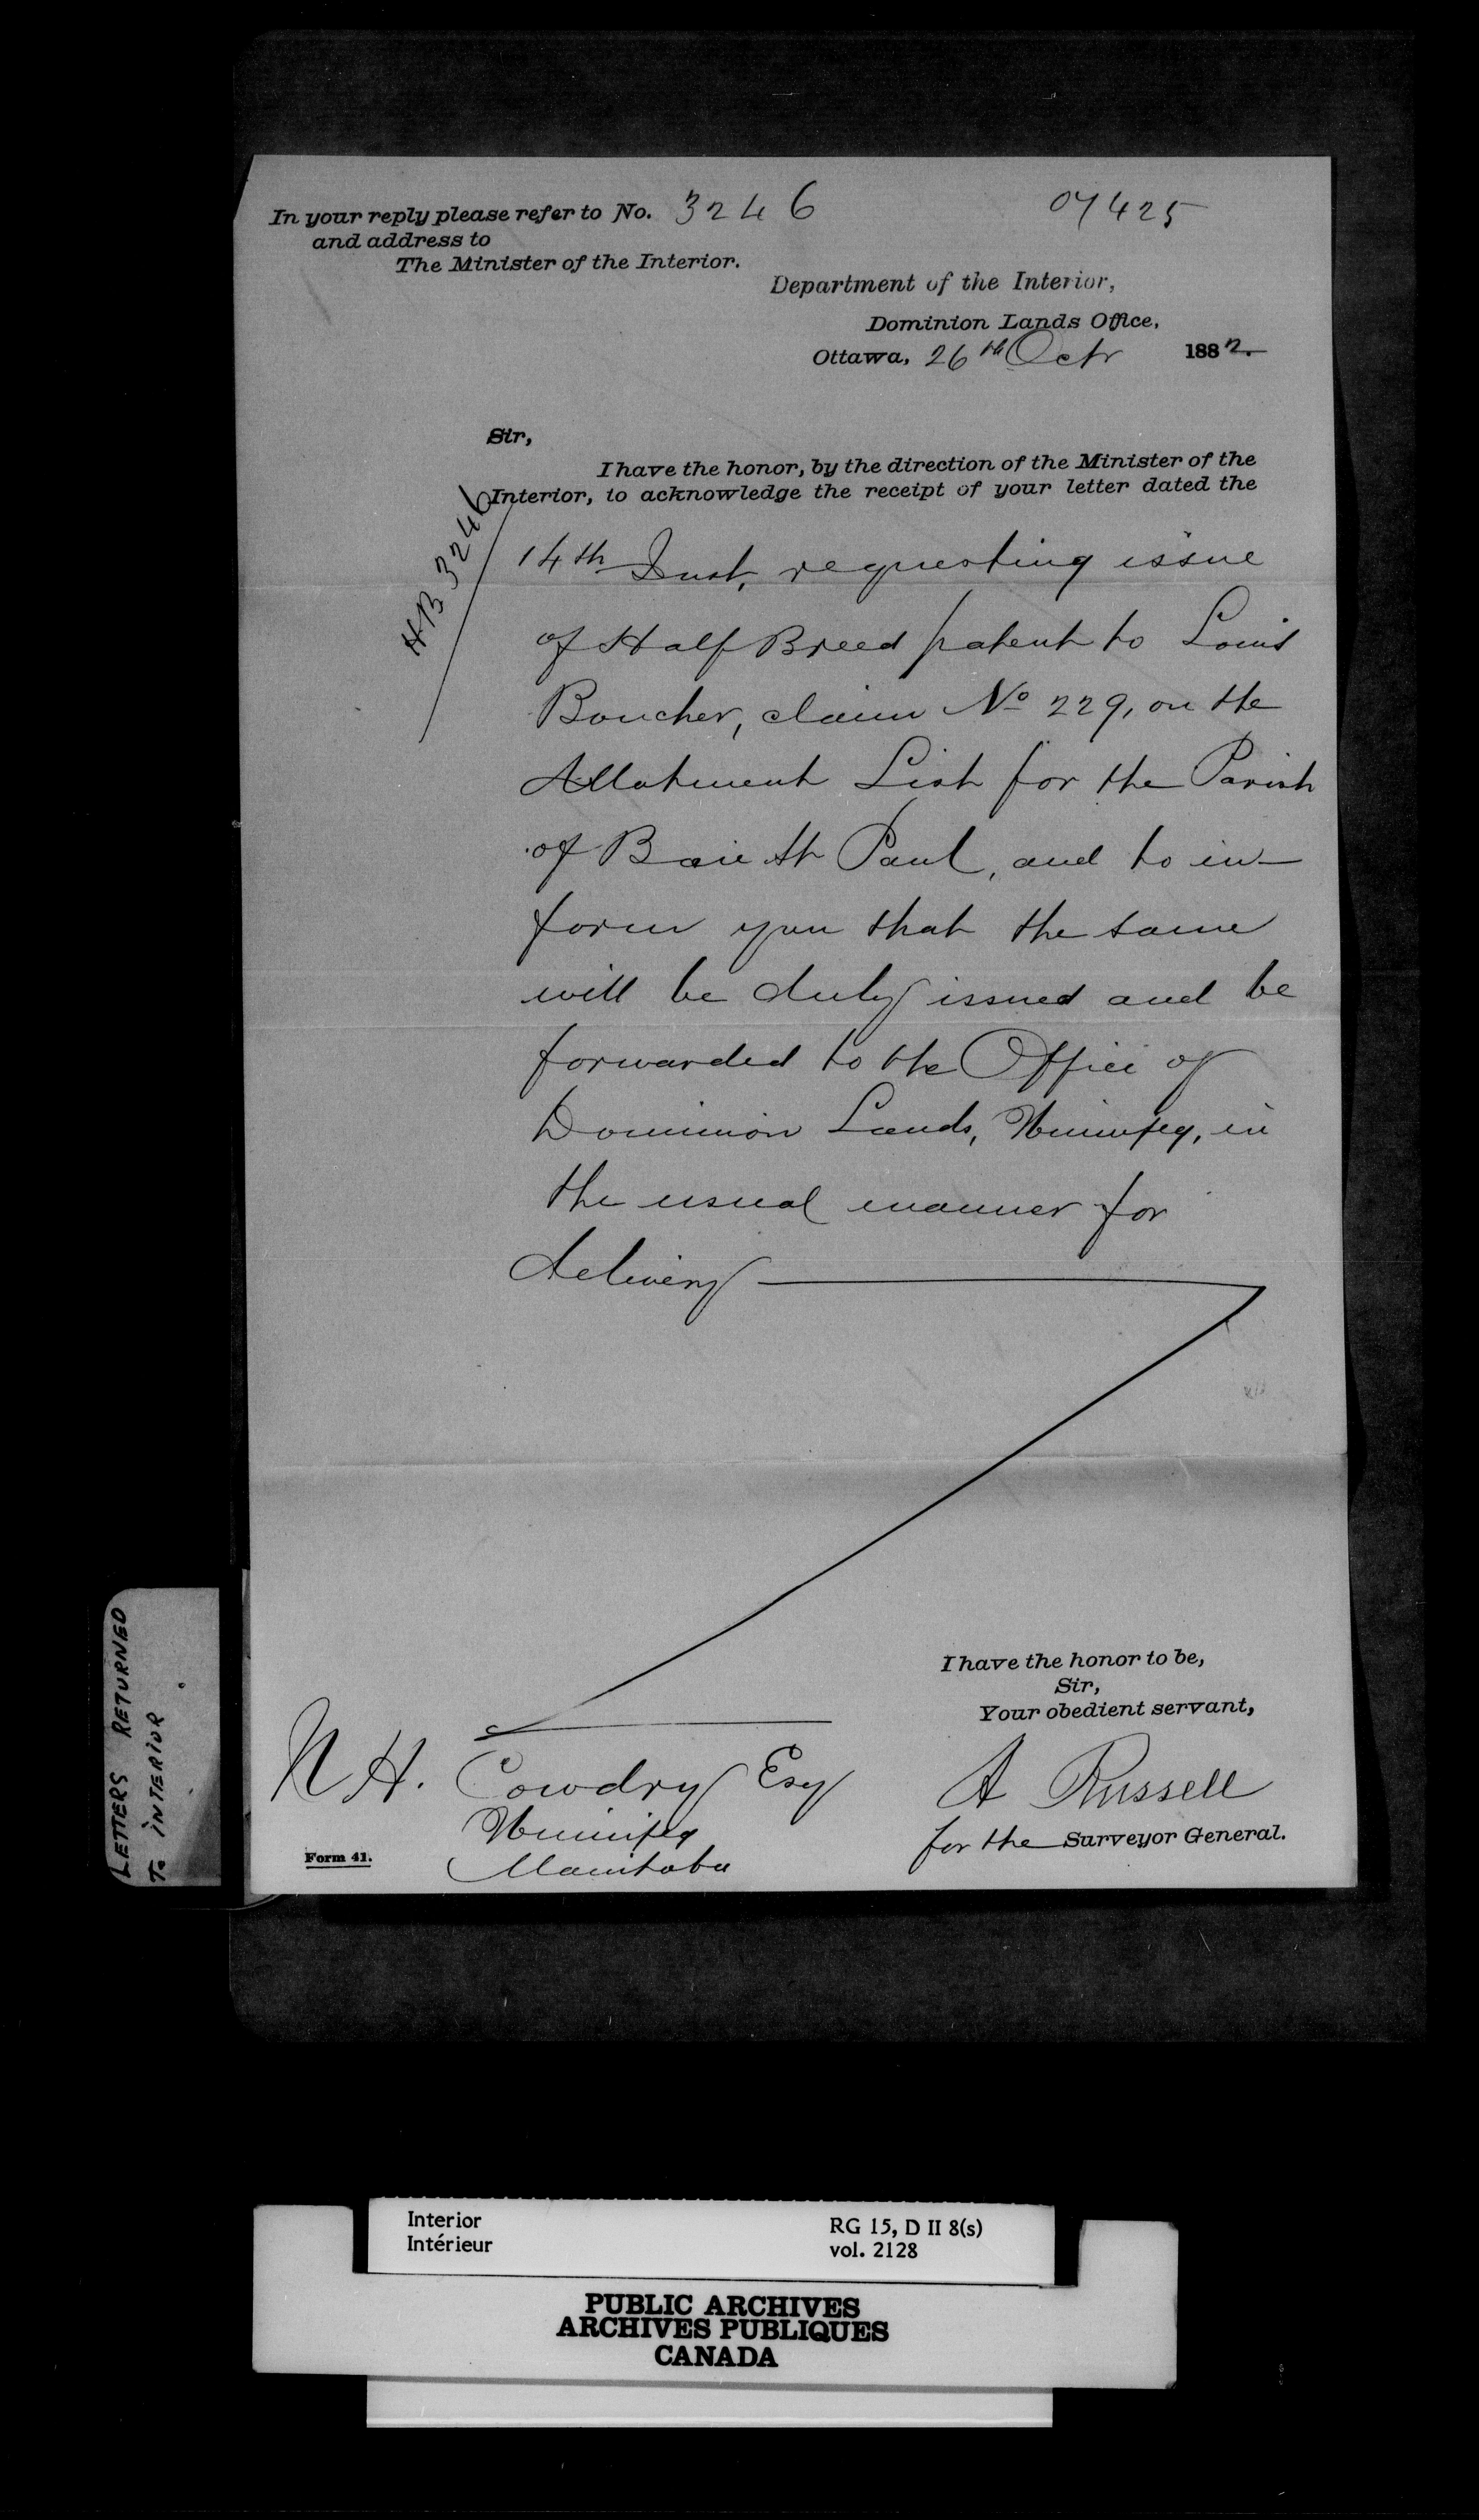 In your reply please refer to No. 3246
and address to
The Minister of the Interior.
07425
Department of the Interior,
Dominion Lands Office,
Ottawa, 26th Octr 1882.
Sir,
I have the honor, by the direction of the Minister of the
Interior, to acknowledge the receipt of your letter dated the
HB 3246
14th Inst, requesting issue
of Half Breed patent to Louis
Boucher, claim No 229, on the
Allotment List for the Parish
of Baie St Paul, and to in-
form you that the same
will be duly issued and be
forwarded to the Office of
Dominion Lands, Winnipeg, in
the usual manner for
delivery
I have the honor to be,
Sir,
Your obedient servant,
A Russell
for the Surveyor General.
N H. Cowdry Esq
Winnipeg
Manitoba
Form 41.
LETTERS RETURNED
To INTERIOR.
Interior
Intérieur
RG 15, D II 8(s)
vol. 2128
PUBLIC ARCHIVES
ARCHIVES PUBLIQUES
CANADA